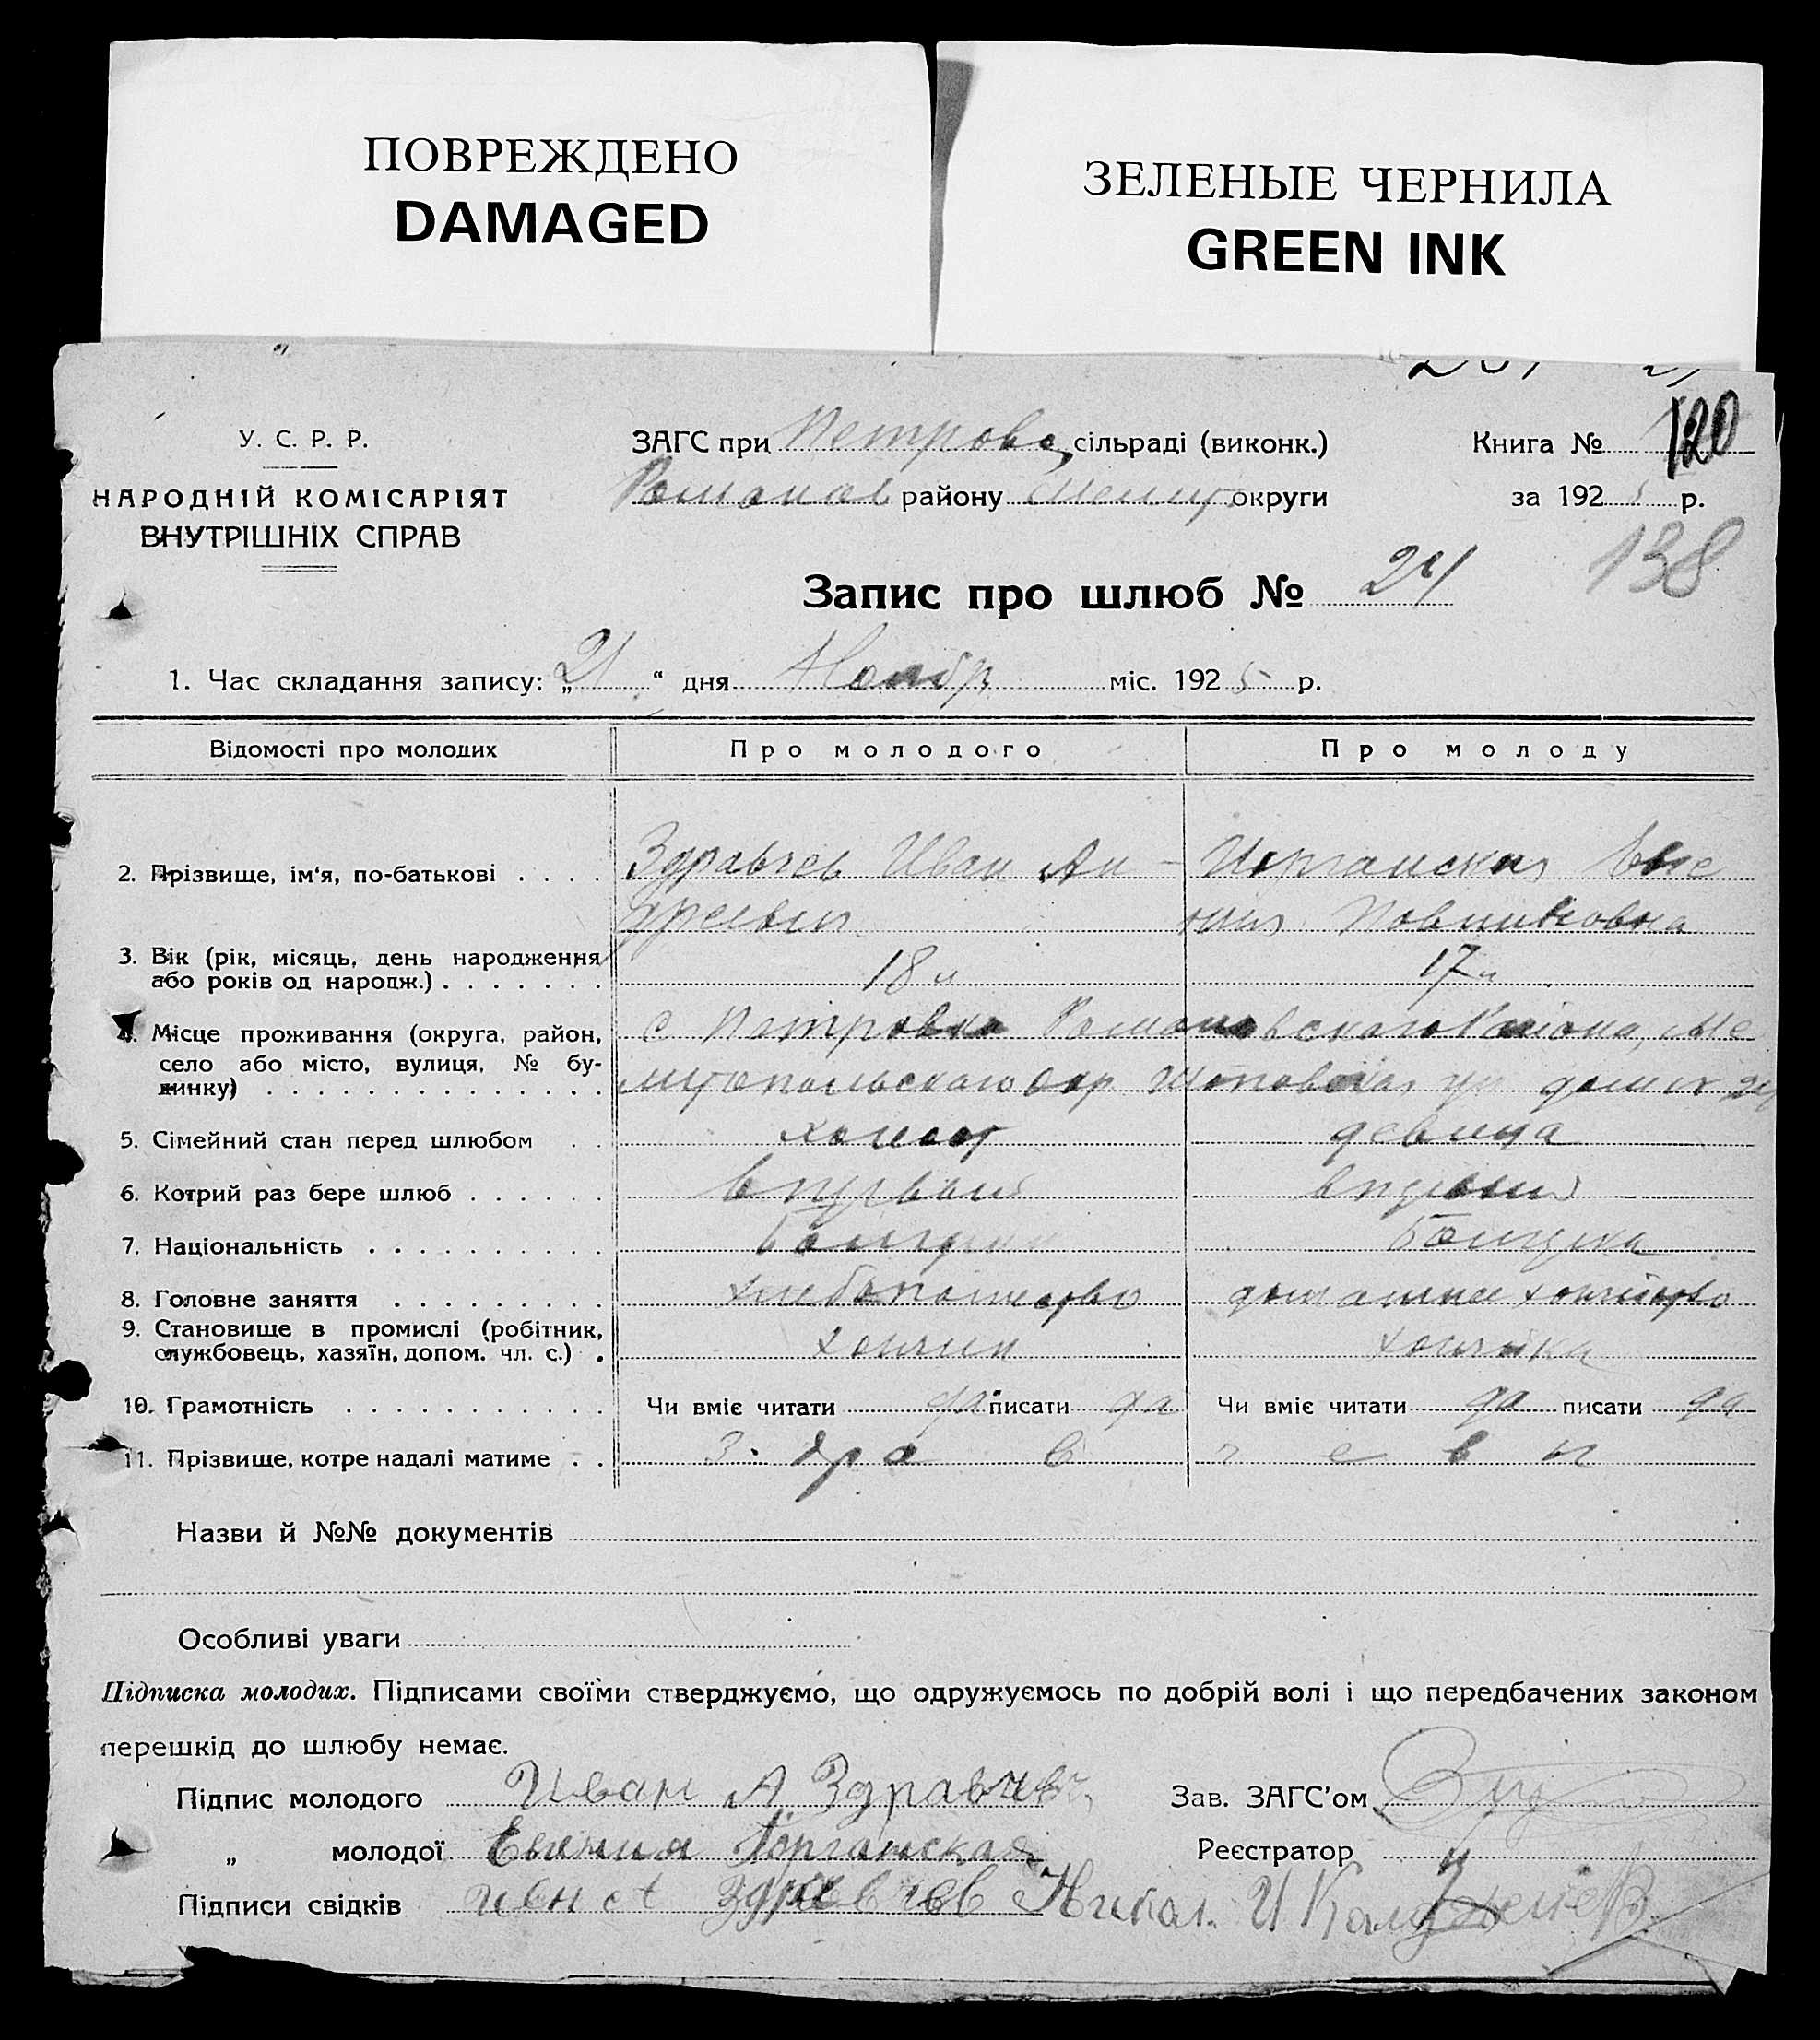 ПОВРЕЖДЕНО
DAMAGED
ЗЕЛЕНЫЕ ЧЕРНИЛА
GREEN INK
120
У. С. Р. Р.
НАРОДНІЙ КОМІСАРІЯТ
ВНУТРІШНІХ СПРАВ
ЗАГС при Петровс, сільраді (виконк.)
Романов району Мелит округи
Книга №
за 192 5 р.
138
Запис про шлюб № 24
1. Час складання запису: „21“ дня Ноябр міс. 192 5 р.
Відомості про молодих Про молодого Про молоду
2. Прізвище, ім'я, по-батькові . . . . Здравчев Иван Ан-
дреевич
3. Вік (рік, місяць, день народження або років од народж.) . . . . . . . 18 л 17 л
4. Місце проживання (округа, район, село або місто, вулиця, № будинку) . . . . . . . . . . . . . .
с Петровка Романовского Района, Ме
литопольского Окр. ул дом №
5. Сімейний стан перед шлюбом . . холост девица
6. Котрий раз бере шлюб . . . . . . впервый впервый
7. Національність . . . . . . . . . . Болгарин Болгарка
8. Головне заняття . . . . . . . . . хлебопашество домашнее хозяйство
9. Становище в промислі (робітник, службовець, хазяїн, допом. чл. с.) . хозяин хозяйка
10. Грамотність . . . . . . . . . . . Чи вміє читати да писати да Чи вміє читати да писати да
11. Прізвище, котре надалі матиме . . З д р а в ч е в ы
Назви й №№ документів
Особливі уваги
Підписка молодих. Підписами своїми стверджуємо, що одружуємось по добрій волі і що передбачених законом
перешкід до шлюбу немає.
Підпис молодого Иван А Здравчев
Зав. ЗАГС'ом
„ молодої Евгения
Реєстратор
Підписи свідків Здравчев Никол. И